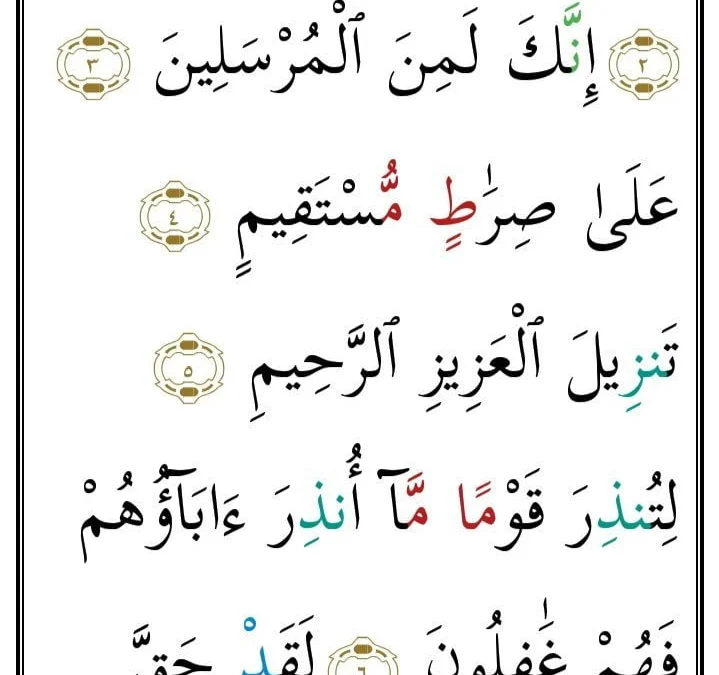 ٢ إِنَّكَ لَمِنَ ٱلْمُرْسَلِينَ ٣
عَلَىٰ صِرَٰطٍ مُّسْتَقِيمٍ ٤
تَنزِيلَ ٱلْعَزِيزِ ٱلرَّحِيمِ ٥
لِتُنذِرَ قَوْمًا مَّآ أُنذِرَ ءَابَآؤُهُمْ
فَهُمْ غَٰفِلُونَ ٦ لَقَدْ حَقَّ